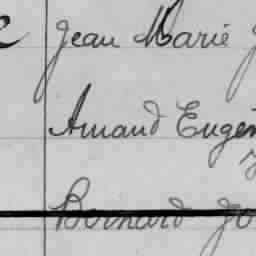 Jean Marie
Amand Eugèn
Bernard Jo